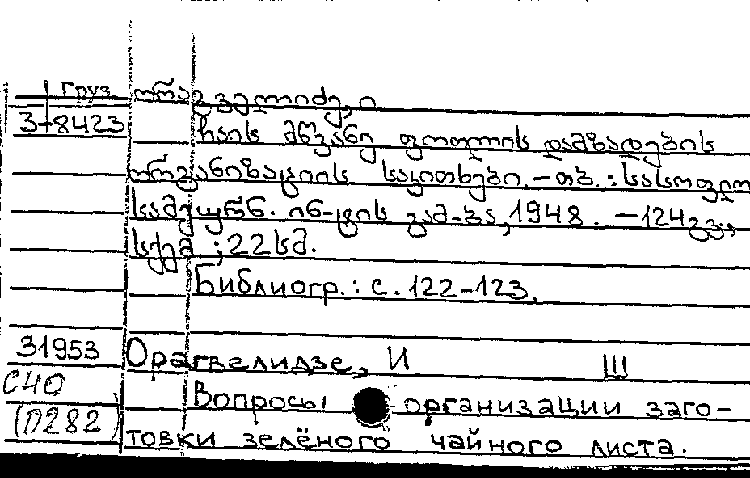 Груз. ორაგველიძე, ი
3-8423 ჩაის მწვანე ფოთლის დამზადების
ორგანიზაციის საკითხები. – თბ. : სასოფლო
სამეურნ. ინ-ტის გამ-ბა, 1948. – 124 გვ.,
სქემ ; 22 სმ.
Библиогр.: с. 122-123.
31953 Орагвелидзе, И Ш
СНО Вопросы организации заго-
(П282) товки зелёного чайного листа.